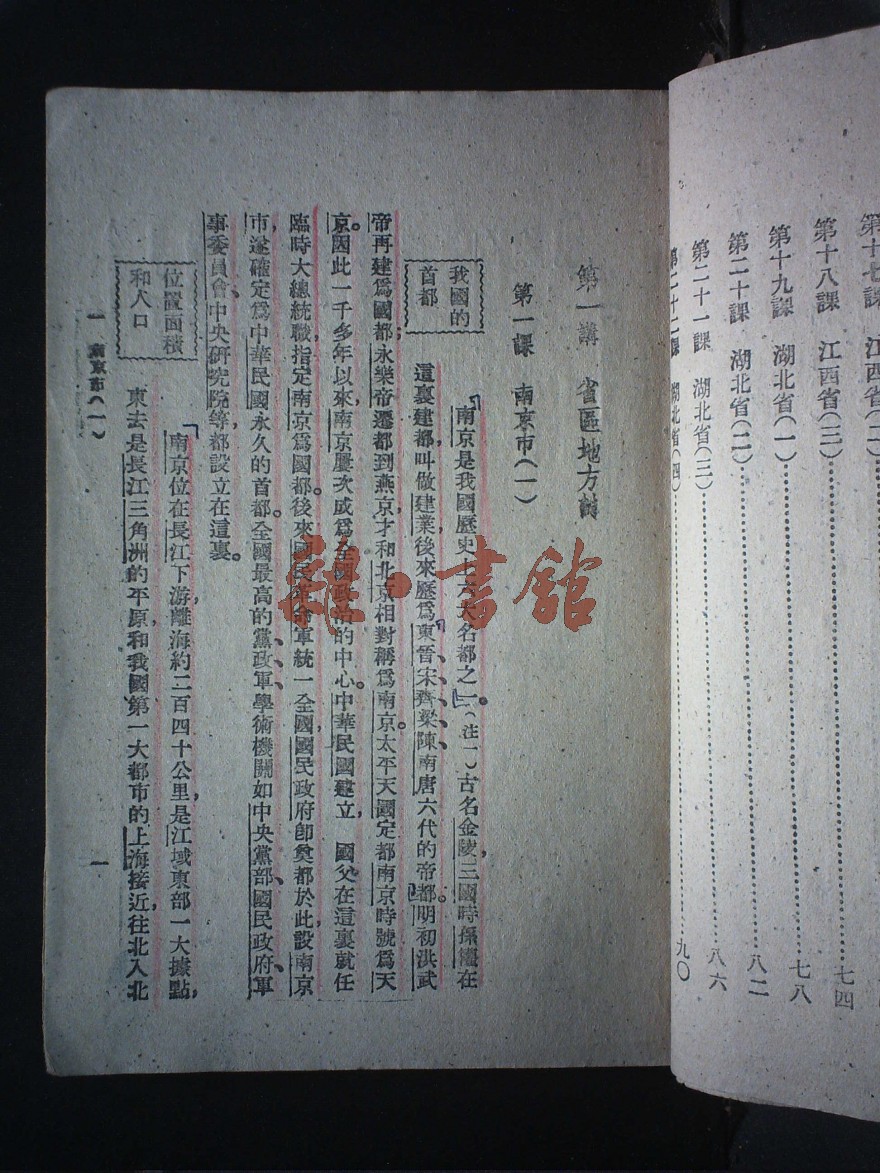 第十七課 江西省(二)
第十八課 江西省(三)……七四
第十九課 湖北省(一)……七八
第二十課 湖北省(二)……八二
第二十一課 湖北省(三)……八六
第二十二課 湖北省(四)……九〇
第一講 省區地方誌
第一課 南京市(一)
我國的
首都
「南京是我國歷史上六大名都之一」。(注一)古名金陵,三國時孫權在
這裏建都,叫做建業,後來歷爲「東晉、宋、齊、梁、陳、南唐六代的帝都。」明初洪武
帝再建爲國都;永樂帝遷都到燕京,才和北京相對稱爲南京。太平天國定都南京時,號爲天
京。因此一千多年以來,南京屢次成爲全國政治的中心。中華民國建立, 國父在這裏就任
臨時大總統職,指定南京爲國都。後來國民革命軍統一全國,國民政府卽奠都於此,設南京
市,遂確定爲中華民國永久的首都。全國最高的黨、政、軍、學術機關,如中央黨部、國民政府、軍
事委員會、中央研究院等,都設立在這裏。
位置面積
和人口
「南京位在長江下游,離海約二百四十公里,是江域東部一大據點,
東去是長江三角洲的平原,和我國第一大都市的上海接近,往北入北
一 南京市(一)
一
雜·書館